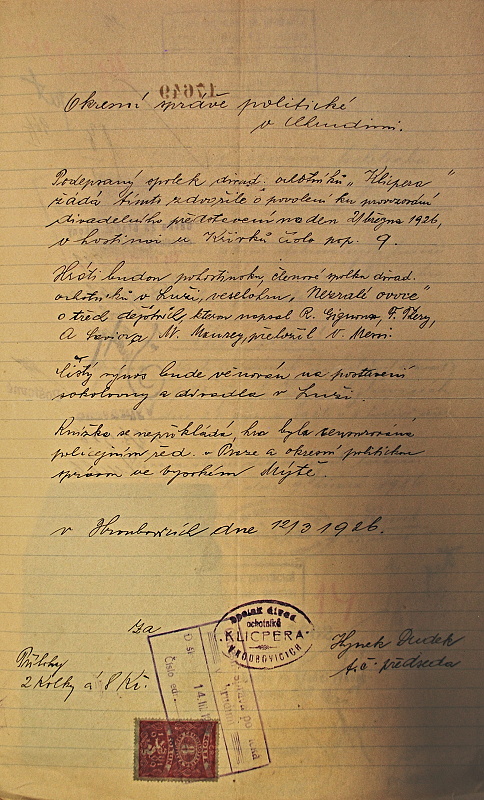 17649
Okresní správě politické
v Chrudimi.
Podepsaný spolek divad. ochotníků „Klicpera"
žádá tímto zdvořile o povolení ku provozování
divadelního představení na den 21 března 1926,
v hostinci u Křivků číslo pop. 9.
Hráti budou pohostinsku, členové spolku divad.
ochotníků v Luži, veselohru „Nezralé ovoce"
o třech dějstvích, kterou napsal R. Gignoux, F. Thery,
přeložil V.
Čistý výnos bude věnován na postavení
sokolovny a divadla v Luži.
Knížka se nepřikládá, hra byla censurována
policejním řed. v Praze a okresní politickou
správou ve Vysokém Mýtě.
v Hroubovicích dne 12/3 1926.
Za
Spolek divad.
ochotníků
„KLICPERA"
V HROUBOVICÍCH
Hynek Dudek
t.č. předseda
Přílohy
2 kolky á 8 Kč.
Číslo ed.
14.III.